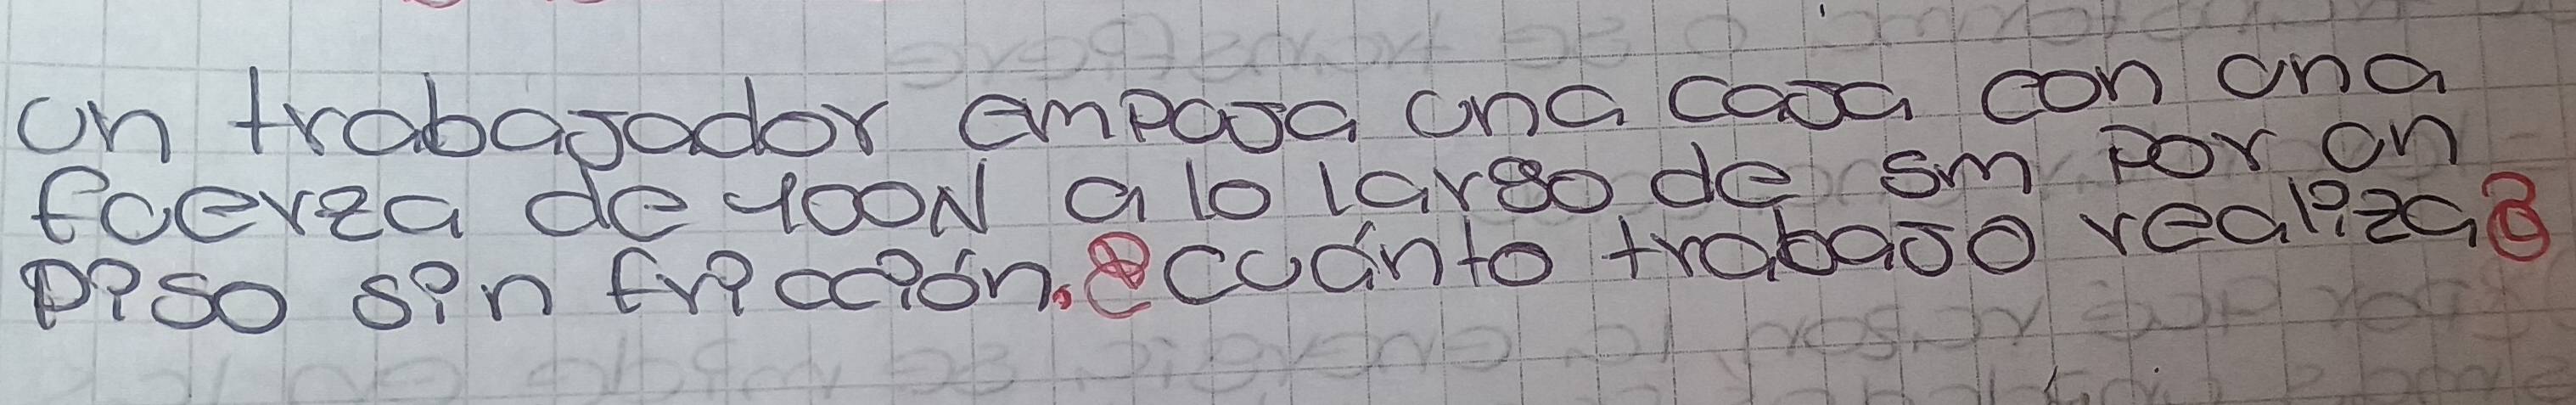 un trabajador empuja una caja con una
fuerza de 400N a lo largo de 5m por un
piso sin fricción. ¿cuánto trabajo realiza?